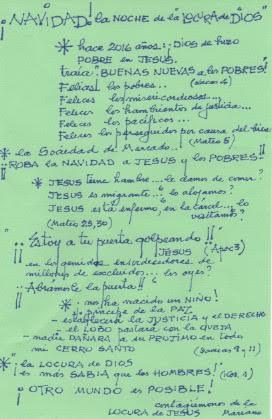 ¡NAVIDAD! la NOCHE de la "LOCURA de DIOS"
* hace 2016 años: ¡DIOS se hizo
POBRE en JESUS.
traía "BUENAS NUEVAS a los POBRES!
Felices los pobres... (Lucas 4)
Felices los misericordiosos...
Felices los hambrientos de justicia...
Felices los pacíficos...
Felices los perseguidos por causa del bien
(Mateo 5)
* la Sociedad de Mercado..!
¡¡ROBA la NAVIDAD a JESUS y los POBRES!!
* JESUS tiene hambre... le damos de comer?
JESUS es migrante... lo alojamos?
JESUS está enfermo, en la cárcel... lo
visitamos?
(Mateo 25,30)
"¡¡Estoy a tu puerta, golpeando!!
JESUS (Apoc 3)
en los gemidos ensordecedores de
millones de excluidos... los oyes?
¡¡Abrámosle la puerta!!
* nos ha nacido un NIÑO!
príncipe de la PAZ
- establecerá la JUSTICIA y el DERECHO
- el LOBO pastará con la OVEJA
- nadie DAÑARA a su PROJIMO en todo
mi CERRO SANTO (Isaías 9 y 11)
* "la LOCURA de DIOS
es más SABIA que los HOMBRES! (1 Cor. 1)
¡OTRO MUNDO es POSIBLE!
contagiémonos de la
LOCURA de JESUS